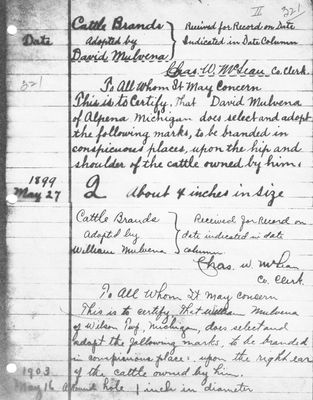 II 321
Cattle Brands Received for Record on Date
Date Adopted by Indicated in Date Column
David Mulvena
Chas. W. McLean, Co. Clerk.
321
To All Whom It May Concern
This is to Certify, That David Mulvena
of Alpena Michigan does select and adopt
the following marks, to be branded in
conspicuous places, upon the hip and
shoulder of the cattle owned by him.
1899
May 27 2 About 4 inches in size
Cattle Brands Received for Record on
Adopted by date indicated in date
William Mulvena column
Chas. W. McLean
Co. Clerk.
To All Whom It May Concern
This is to certify That William Mulvena
of Wilson Twp, Michigan, does select and
adapt the following marks, to be branded
in conspicuous place: upon the right ear
of the cattle owned by him.
1903
May 16 A round hole 1 inch in diameter